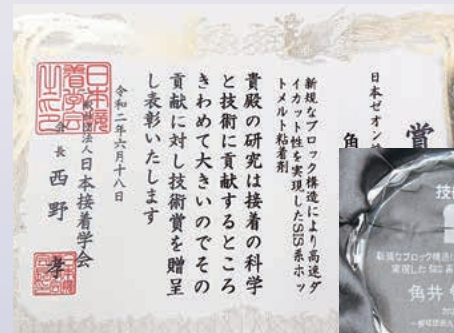 賞
日本ゼオン
角
新規なブロック構造により高速ダ
イカット性を実現したSIS系ホッ
トメルト粘着剤
貴殿の研究は接着の科学
と技術に貢献するところ
きわめて大きいのでその
貢献に対し技術賞を贈呈
し表彰いたします
令和二年六月十八日
一般社団法人日本接着学会
会長 西野 孝
日本接
着学会
之印
技
新規なブロック構造
実現した
角井